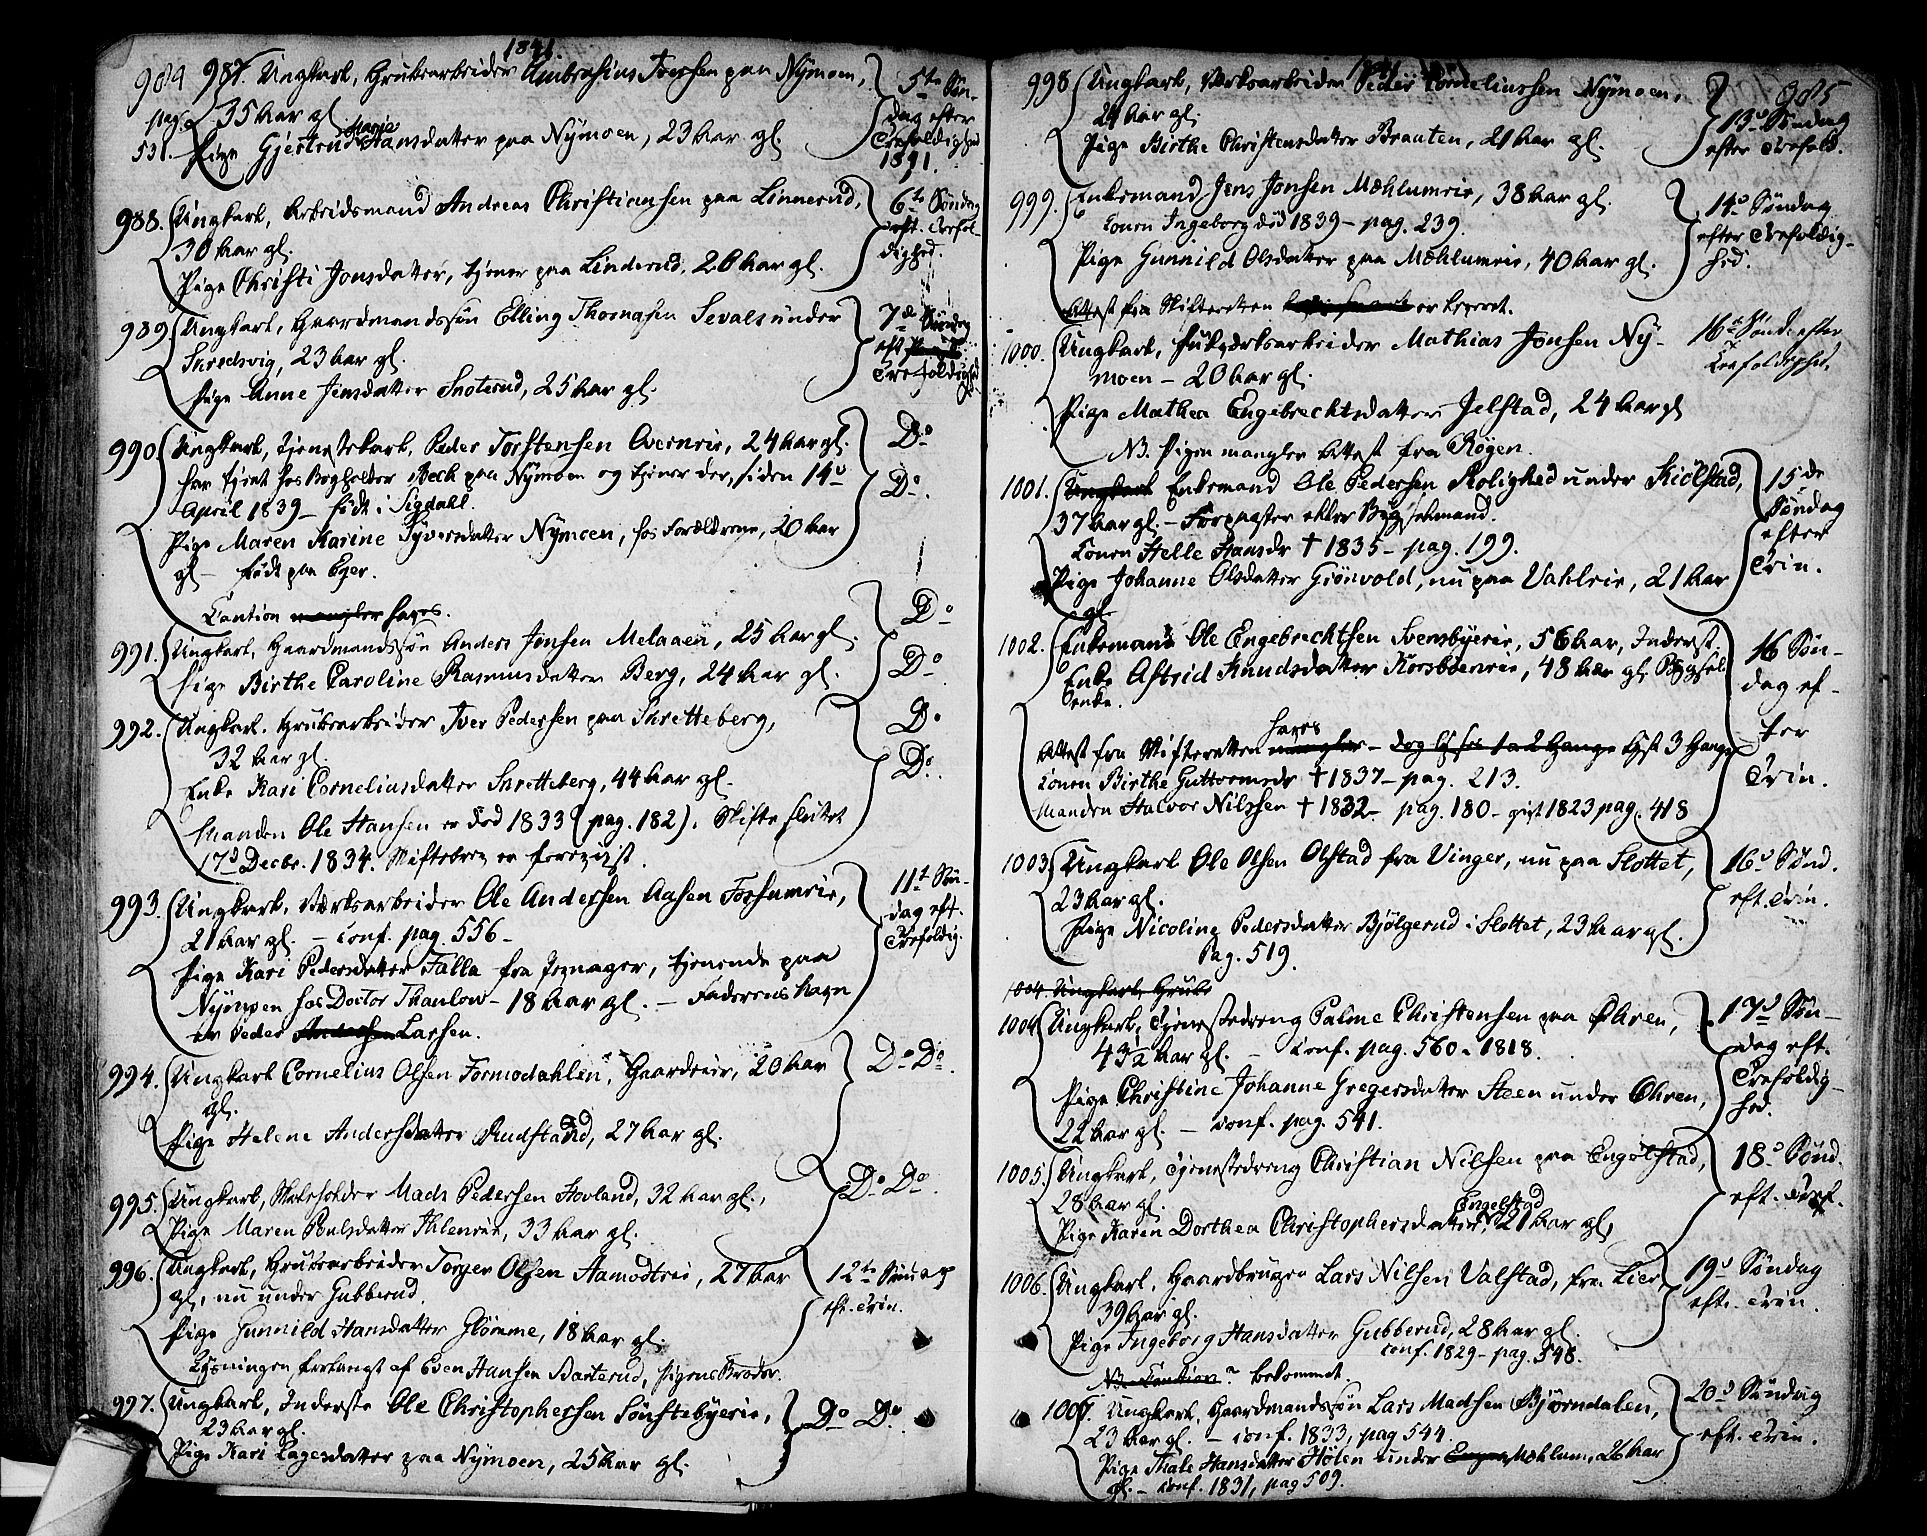 1841.
984 987. Ungkarl, Grubearbeider Ambrosius Iversen paa Nymoen, 5te Søn-
pag. 35 Aar gl. dag efter
531. Pige Gjertrud Marie Hansdatter paa Nymoen, 23 Aar gl. Trefoldighed
1841.
988. Ungkarl, Arbeidsmand Andreas Christiansen paa Linnerud, 6te Søndag
30 Aar gl. eft. Trefol-
Pige Christi Jonsdatter, tjener paa Linderud, 26 Aar gl. dighed.
989. Ungkarl, Gaardmandssøn Elling Thomasen Sevals under 7de Søndag
Skredsvig, 23 Aar gl. eft
Pige Anne Jensdatter Snoterud, 25 Aar gl. Trefoldighed
990. Ungkarl, Tjenestekarl, Peder Torstensen Overneie, 24 Aar gl. Do
har tjent hos Bogholder Bech paa Nymoen og tjener der, siden 14de Do.
April 1839 - født i Sigdahl.
Pige Maren Karine Syversdatter Nymoen, hos Forældrene, 20 Aar
gl - født paa Eger.
Caution mangler haves. Do
991. Ungkarl, Gaardmandssøn Anders Jonsen Melaaen, 25 Aar gl.
Pige Birthe Caroline Rasmusdatter Berg, 24 Aar gl. Do
992. Ungkarl. Grubearbeider Iver Pedersen paa Skretteberg, Do
32 Aar gl. Do.
Enke Kari Corneliusdatter Skretteberg, 44 Aar gl.
Manden Ole Hansen er død 1833 (pag. 182). Skifte sluttet
17d Decbr. 1834. Skiftebrev er foreviist.
993. Ungkarl, Værksarbeider Ole Andersen Aasen Fossumeie, 11te Søn-
21 Aar gl. - conf. pag. 556 - dag eft.
Pige Kari Pedersdatter Falla fra Jevnager, tjenende paa Trefoldig.
Nymoen hos Doctor Thaulow - 18 Aar gl. - Faderens Navn
er Peder Andersen Larsen.
994. Ungkarl Cornelius Olsen Formodahlen, Gaardeier, 20 Aar Do Do.
gl.
Pige Helene Andersdatter Rudstad, 27 Aar gl.
995. Ungkarl, Skoleholder Mads Pedersen Hovland, 32 Aar gl., Do Do.
Pige Maren Poulsdatter Ihleneie, 33 Aar gl.
996. Ungkarl, Grubearbeider Torger Olsen Aamodteie, 27 Aar 12te Søndag
gl, nu under Gubberud. eft. Trin.
Pige Gunnild Hansdatter Glomme, 18 Aar gl.
Lysningen forlangt af Even Hansen Barterud, Pigens Broder.
997. Ungkarl, Inderste Ole Christophersen Sønstebyeie, Do Do.
23 Aar gl.
Pige Kari Lagesdatter paa Nymoen, 25 Aar gl.
998 Ungkarl, Værksarbeider Peder Corneliussen Nymoen, 985
24 Aar gl. 13de Søndag
Pige Birthe Christensdatter Brauten, 21 Aar gl. efter Trefold.
999. Enkemand, Jens Jonsen Mæhlumeie, 38 Aar gl. 14de Søndag
Konen Ingeborg død 1839 - pag. 239. efter Trefoldig-
Pige Gunnild Olsdatter paa Mæhlumeie, 40 Aar gl. hed.
Attest fra Skifteretten er leveret.
1000. Ungkarl, Arbeider Mathias Jonsen Ny- 16de Sønd. efter
moen - 20 Aar gl. Trefoldighed.
Pige Mathea Engebrechtsdatter Jelstad, 24 Aar gl
NB. Pigen mangler Attest fra Røgen.
1001. Ungkarl Enkemand Ole Pedersen Rolighed under Kiølstad, 15de
37 Aar gl. - Forpagter eller Bygselmand. Søndag
Konen Helle Hansdr † 1835 - pag. 199. efter
Pige Johanne Olsdatter Grønvold, nu paa Vahleie, 21 Aar Trin.
gl
1002. Enkemand Ole Engebrechtsen Svensbyeie, 56 Aar, Inderst 16 Søn-
Enke Astrid Knudsdatter Korsbøeneie, 48 Aar gl. Bygsel dag ef-
Enke. ter
Attest fra Skifteretten mangler haves - dog lyses 1 a 2 Gange lyst 3 Gange Trin.
Konen Birthe Guttormsdr † 1837 - pag. 213.
Manden Halvor Nilssen † 1832 - pag. 180 - gift 1823 pag. 418
1003 Ungkarl Ole Olsen Olstad fra Vinger, nu paa Slottet, 16de Sønd.
23 Aar gl. eft. Trin.
Pige Nicoline Pedersdatter Bjølgerud i Slottet, 23 Aar gl.
Pag. 519.
1004. Ungkarl, Grube
1004 Ungkarl, Tjenestedreng Palme Christensen paa Øhren, 17de Søn-
43½ Aar gl. - conf. pag. 560 - 1818. dag eft.
Pige Christine Johanne Gregersdatter Steen under Øhren, Trefoldig-
22 Aar gl. - conf. pag. 541. hed.
1005. Ungkarl, Tjenestedreng Christian Nilsen paa Engelstad, 18de Sønd.
28 Aar gl. eft. Tref.
Pige Karen Dorthea Christophersdatter Engelstad, 21 Aar gl,
1006. Ungkarl, Gaardbruger Lars Nilsen Valstad, fra Lier, 19de Søndag
39 Aar gl. eft. Trin.
Pige Ingeborg Hansdatter Gubberud, 28 Aar gl.
conf. 1829 - pag. 548.
NB. Caution? bekommet
1007. Ungkarl, Gaardmandssøn Lars Madsen Bjørndalen, 20de Søndag
23 Aar gl. - conf. 1833, pag 544. eft. Trin.
Pige Thale Hansdatter Holen under Mæhlum, 26 Aar
gl. - conf. 1831, pag 509.